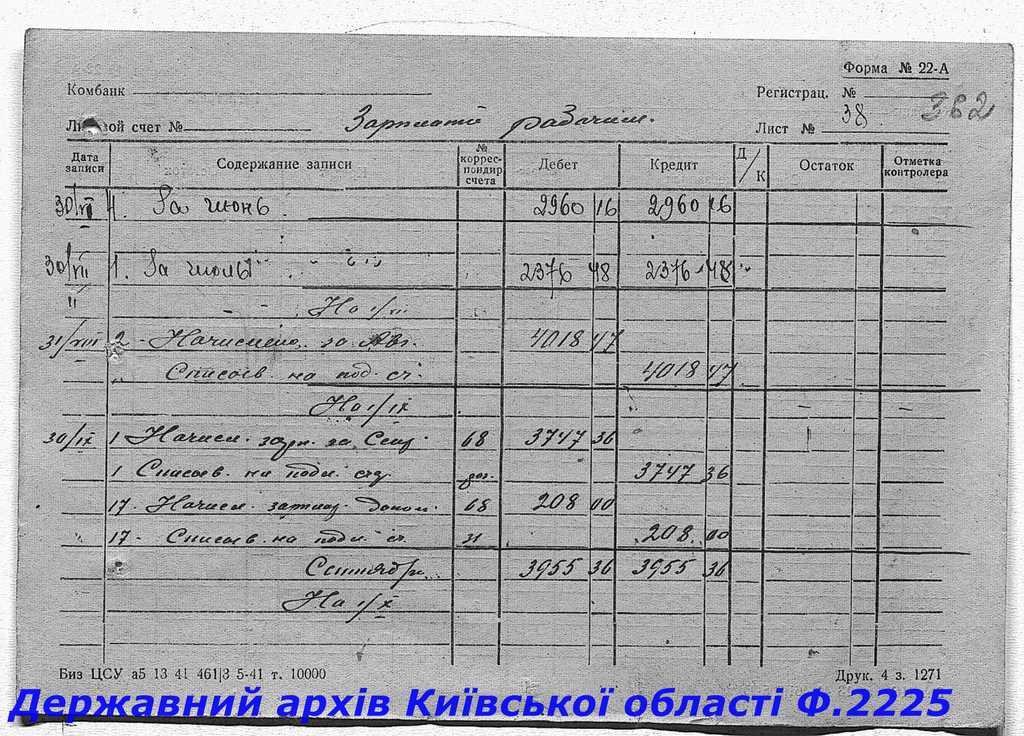 Форма № 22-А
Комбанк
Регистрац. №
362
Ли вой счет №
Зарплата рабочим.
Лист №
38
Дата записи
Содержание записи
№ корреспондир счета
Дебет
Кредит
Д/К
Остаток
Отметка контролера
30/VI 1. За июнь 2960 16 2960 16
30/VII 1. За июль 2376 48 2376 48
" На 1/VII
31/VIII 2 - Начислено за Авг. 4018 47
" Списыв. на под. сч. 4018 47
На 1/IX
30/IX 1 Начисл. зарп. за Сент. 68 3747 36
1 Списыв. на подл. 3747 36
17. Начисл. 68 208 00
17 - Списыв. на подл. сч. 21 208. 00
Сентябрь 3955 36 3955 36
На 1/X
Биз ЦСУ а5 13 41 461|3 5-41 т. 10000
Друк. 4 з. 1271
Державний архів Київської області Ф.2225